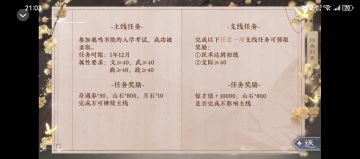 21:03
-主线任务-
参加鹿鸣书院的入学考试，成功被
录取。
任务时限：1年12月
属性要求：文≥40，武≥40
商≥40，政≥40
-任务奖励-
奇遇券*30，山石*800，月石*10
完成方可继续主线
-支线任务-
完成以下任意一项支线任务可领取
奖励：
①医术达到初级
②交际≥60
-任务奖励-
惊才值+10000，山石*800
是否完成不影响主线
返